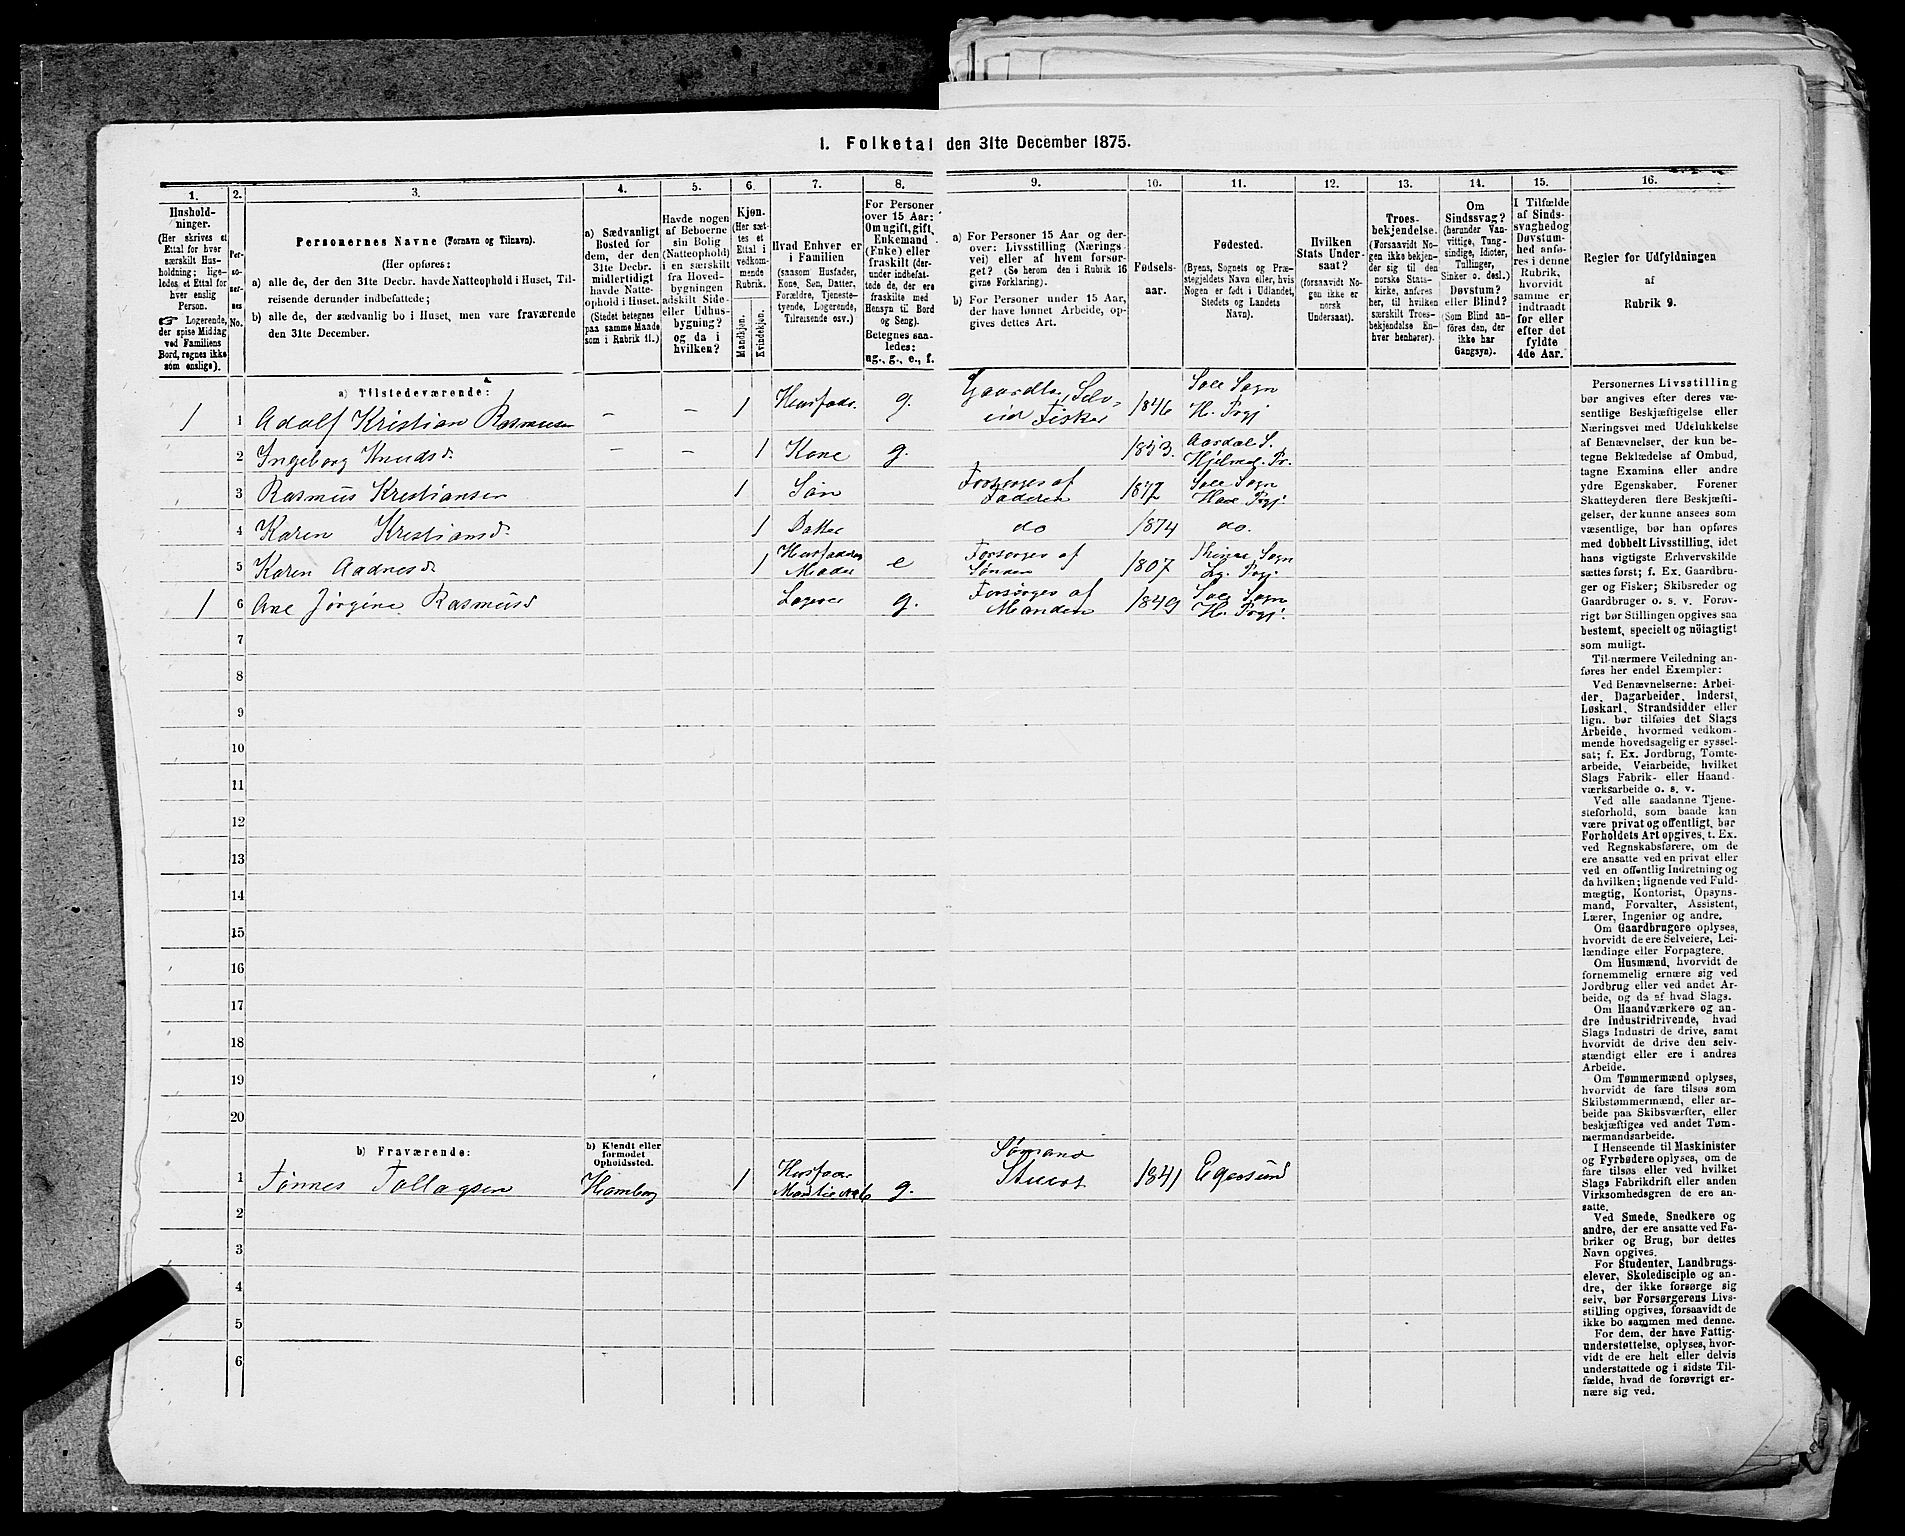 1. Folketal den 31te December 1875.
1. 2. 3. 4. 5. 6. 7. 8. 9. 10. 11. 12. 13. 14. 15. 16.
Hushold-
ninger.
(Her skrives et
Ettal for hver
særskilt Hus-
holdning; lige-
ledes et Ettal for
hver enslig
Person.
☞ Logerende,
der spise Middag
ved Familiens
Bord, regnes ikke
som enslige).
Per-
so-
ner-
nes
No.
Personernes Navne (Fornavn og Tilnavn).
(Her opføres:
a) alle de, der den 31te Decbr. havde Natteophold i Huset, Til-
reisende derunder indbefattede;
b) alle de, der sædvanlig bo i Huset, men vare fraværende
den 31te December.
a) Sædvanligt
Bosted for
dem, der den
31te Decbr.
midlertidigt
havde Natte-
ophold i Huset.
(Stedet betegnes
paa samme Maade
som i Rubrik 11.)
Havde nogen
af Beboerne
sin Bolig
(Natteophold)
i en særskilt
fra Hoved-
bygningen
adskilt Side-
eller Udhus-
bygning?
og da i
hvilken?
Kjøn.
(Her sæt-
tes et
Ettal i
vedkom-
mende
Rubrik.
Mandkjøn.
Kvindekjøn.
Hvad Enhver er
i Familien
(saasom Husfader,
Kone, Søn, Datter,
Forældre, Tjeneste-
tyende, Logerende,
Tilreisende osv.)
For Personer
over 15 Aar:
Om ugift, gift,
Enkemand
(Enke) eller
fraskilt (der-
under indbefat-
tede de, der ere
fraskilte med
Hensyn til Bord
og Seng).
Betegnes saa-
ledes:
ug., g., e., f.
a) For Personer 15 Aar og der-
over: Livsstilling (Nærings-
vei) eller af hvem forsør-
get? (Se herom den i Rubrik 16
givne Forklaring).
b) For Personer under 15 Aar,
der have lønnet Arbeide, op-
gives dettes Art.
Fødsels-
aar.
Fødested.
(Byens, Sognets og Præ-
stegjeldets Navn eller, hvis
Nogen er født i Udlandet,
Stedets og Landets
Navn).
Hvilken
Stats Under-
saat?
(forsaavidt No-
gen ikke er
norsk
Undersaat).
Troes-
bekjendelse.
(Forsaavidt No-
gen ikke bekjen-
der sig til den
norske Stats-
kirke, anføres
her, til hvilken
særskilt Troes-
bekjendelse En-
hver henhører).
Om
Sindssvag?
(herunder Van-
vittige, Tung-
sindige, Idioter,
Tullinger,
Sinker o. desl.)
Døvstum?
eller Blind?
(Som Blind an-
føres den, der
ikke har
Gangsyn).
I Tilfælde
af Sinds-
svaghed og
Døvstum-
hed anfø-
res i denne
Rubrik,
hvorvidt
samme er
indtraadt
før eller
efter det
fyldte
4de Aar.
Regler for Udfyldningen
af
Rubrik 9.
a) Tilstedeværende:
1 1 Adolf Kristian Rasmussen – – 1 Husfader g. Gaardbr, Selv-
eier Fisker 1846 Sole Sogn
H. Prgj
2 Ingeborg Knudsd. – – 1 Kone g. 1853. Aardal S.
Hjelmel. Pr.
3 Rasmus Kristiansen 1 Søn Forsørges af
Faderen 1872 Sole Sogn
Haa Prgj.
4 Karen Kristiansd 1 Datter do 1874 do.
5 Karen Aadnesd 1 Husfaderens
Moder e Forsørges af
Sønnen 1807 Sogn
Prgj.
1 6 Ane Jørgine Rasmusd Logerer g. Forsørges af
Manden 1849 Sole Sogn
H. Prgj.
7
8
9
10
11
12
13
14
15
16
17
18
19
20
b) Fraværende:
b) Kjendt eller
formodet
Opholdssted.
1 Tønnes Tollagsen Hamborg 1 Husfader
g. Sømand
Stuert 1841 Egersund
2
3
4
5
6
Personernes Livsstilling
bør angives efter deres væ-
sentlige Beskjæftigelse eller
Næringsvei med Udelukkelse
af Benævnelser, der kun be-
tegne Beklædelse af Ombud,
tagne Examina eller andre
ydre Egenskaber. Forener
Skatteyderen flere Beskjæfti-
gelser, der kunne ansees som
væsentlige, bør han opføres
med dobbelt Livsstilling, idet
hans vigtigste Erhvervskilde
sættes først; f. Ex. Gaardbru-
ger og Fisker; Skibsreder og
Gaardbruger o. s. v. Forøv-
rigt bør Stillingen opgives saa
bestemt, specielt og nöiagtigt
som muligt.
Til nærmere Veiledning an-
føres her endel Exempler:
Ved Benævnelserne: Arbei-
der, Dagarbeider, Inderst,
Løskarl, Strandsidder eller
lign. bør tilføies det Slags
Arbeide, hvormed vedkom-
mende hovedsagelig er syssel-
sat; f. Ex. Jordbrug, Tomte-
arbeide, Veiarbeide, hvilket
Slags Fabrik- eller Haand-
værksarbeide o. s. v.
Ved alle saadanne Tjene-
steforhold, som baade kan
være privat og offentligt, bør
Forholdets Art opgives, t. Ex.
ved Regnskabsførere, om de
ere ansatte ved en privat eller
ved en offentlig Indretning og
da hvilken; lignende ved Fuld-
mægtig, Kontorist, Opsyns-
mand, Forvalter, Assistent,
Lærer, Ingeniør og andre.
Om Gaardbrugere oplyses,
hvorvidt de ere Selveiere, Lei-
lændinge eller Forpagtere.
Om Husmænd, hvorvidt de
fornemmelig ernære sig ved
Jordbrug eller ved andet Ar-
beide, og da af hvad Slags.
Om Haandværkere og an-
dre Industridrivende, hvad
Slags Industri de drive, samt
hvorvidt de drive den selv-
stændigt eller ere i andres
Arbeide.
Om Tømmermænd oplyses,
hvorvidt de fare tilsøs som
Skibstømmermænd, eller ar-
beide paa Skibsværfter, eller
beskjæftiges ved andet Tøm-
mermandsarbeide.
I Henseende til Maskinister
og Fyrbødere oplyses, om de
fare tilsøs eller ved hvilket
Slags Fabrikdrift eller anden
Virksomhedsgren de ere an-
satte.
Ved Smede, Snedkere og
andre, der ere ansatte ved Fa-
briker og Brug, bør dettes
Navn opgives.
For Studenter, Landbrugs-
elever, Skoledisciple og an-
dre, der ikke forsørge sig
selv, bør Forsørgerens Livs-
stilling opgives, forsaavidt de
ikke bo sammen med denne.
For dem, der have Fattig-
understøttelse, oplyses, hvor-
vidt de ere helt eller delvis
understøttede og i sidste Til-
fælde, hvad de forøvrigt er-
nære sig ved.